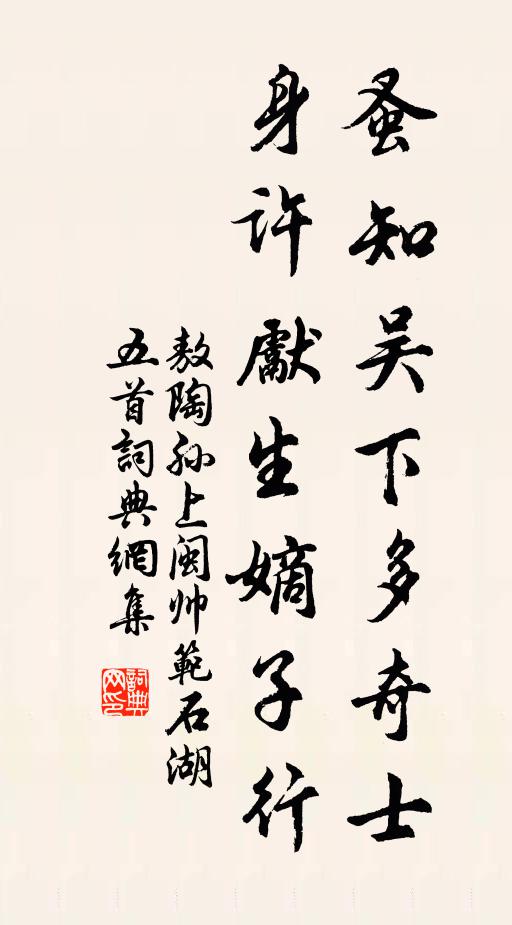 蚤知吴下多奇士
身许獻生嫡子行
敖陶孙上闽帅範石湖
五首詞典網集
詞典网印